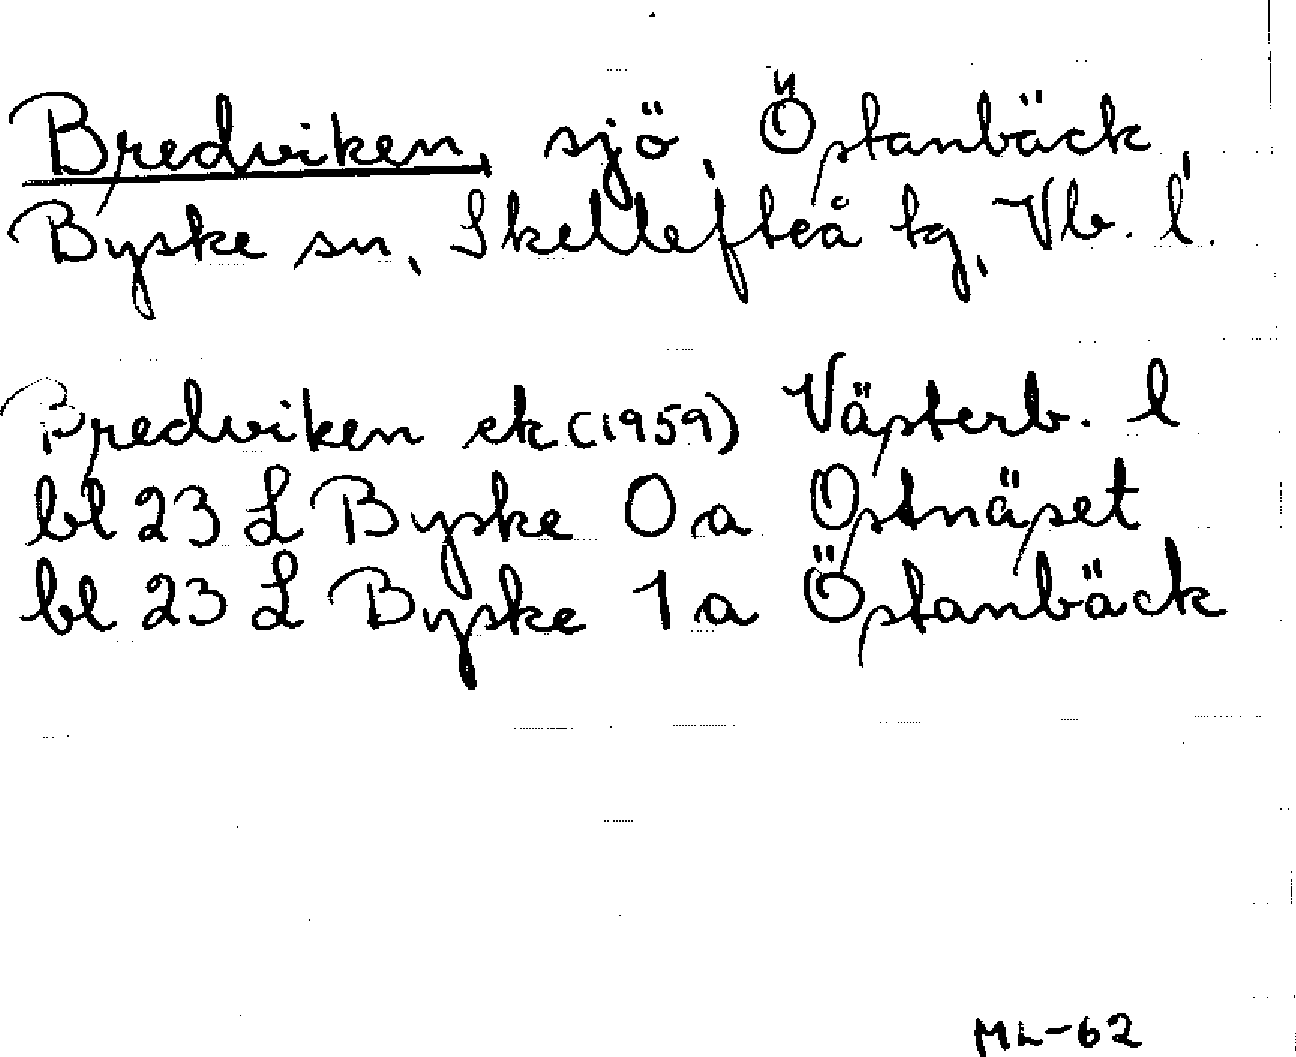 Bredviken, sjö, Östanbäck,
Byske sn, Skellefteå tg, Vb. l.
Bredviken ek (1959) Västerb. l
bl 23 L Byske 0 a Ostnäset
bl 23 L Byske 1 a Östanbäck
ML-62